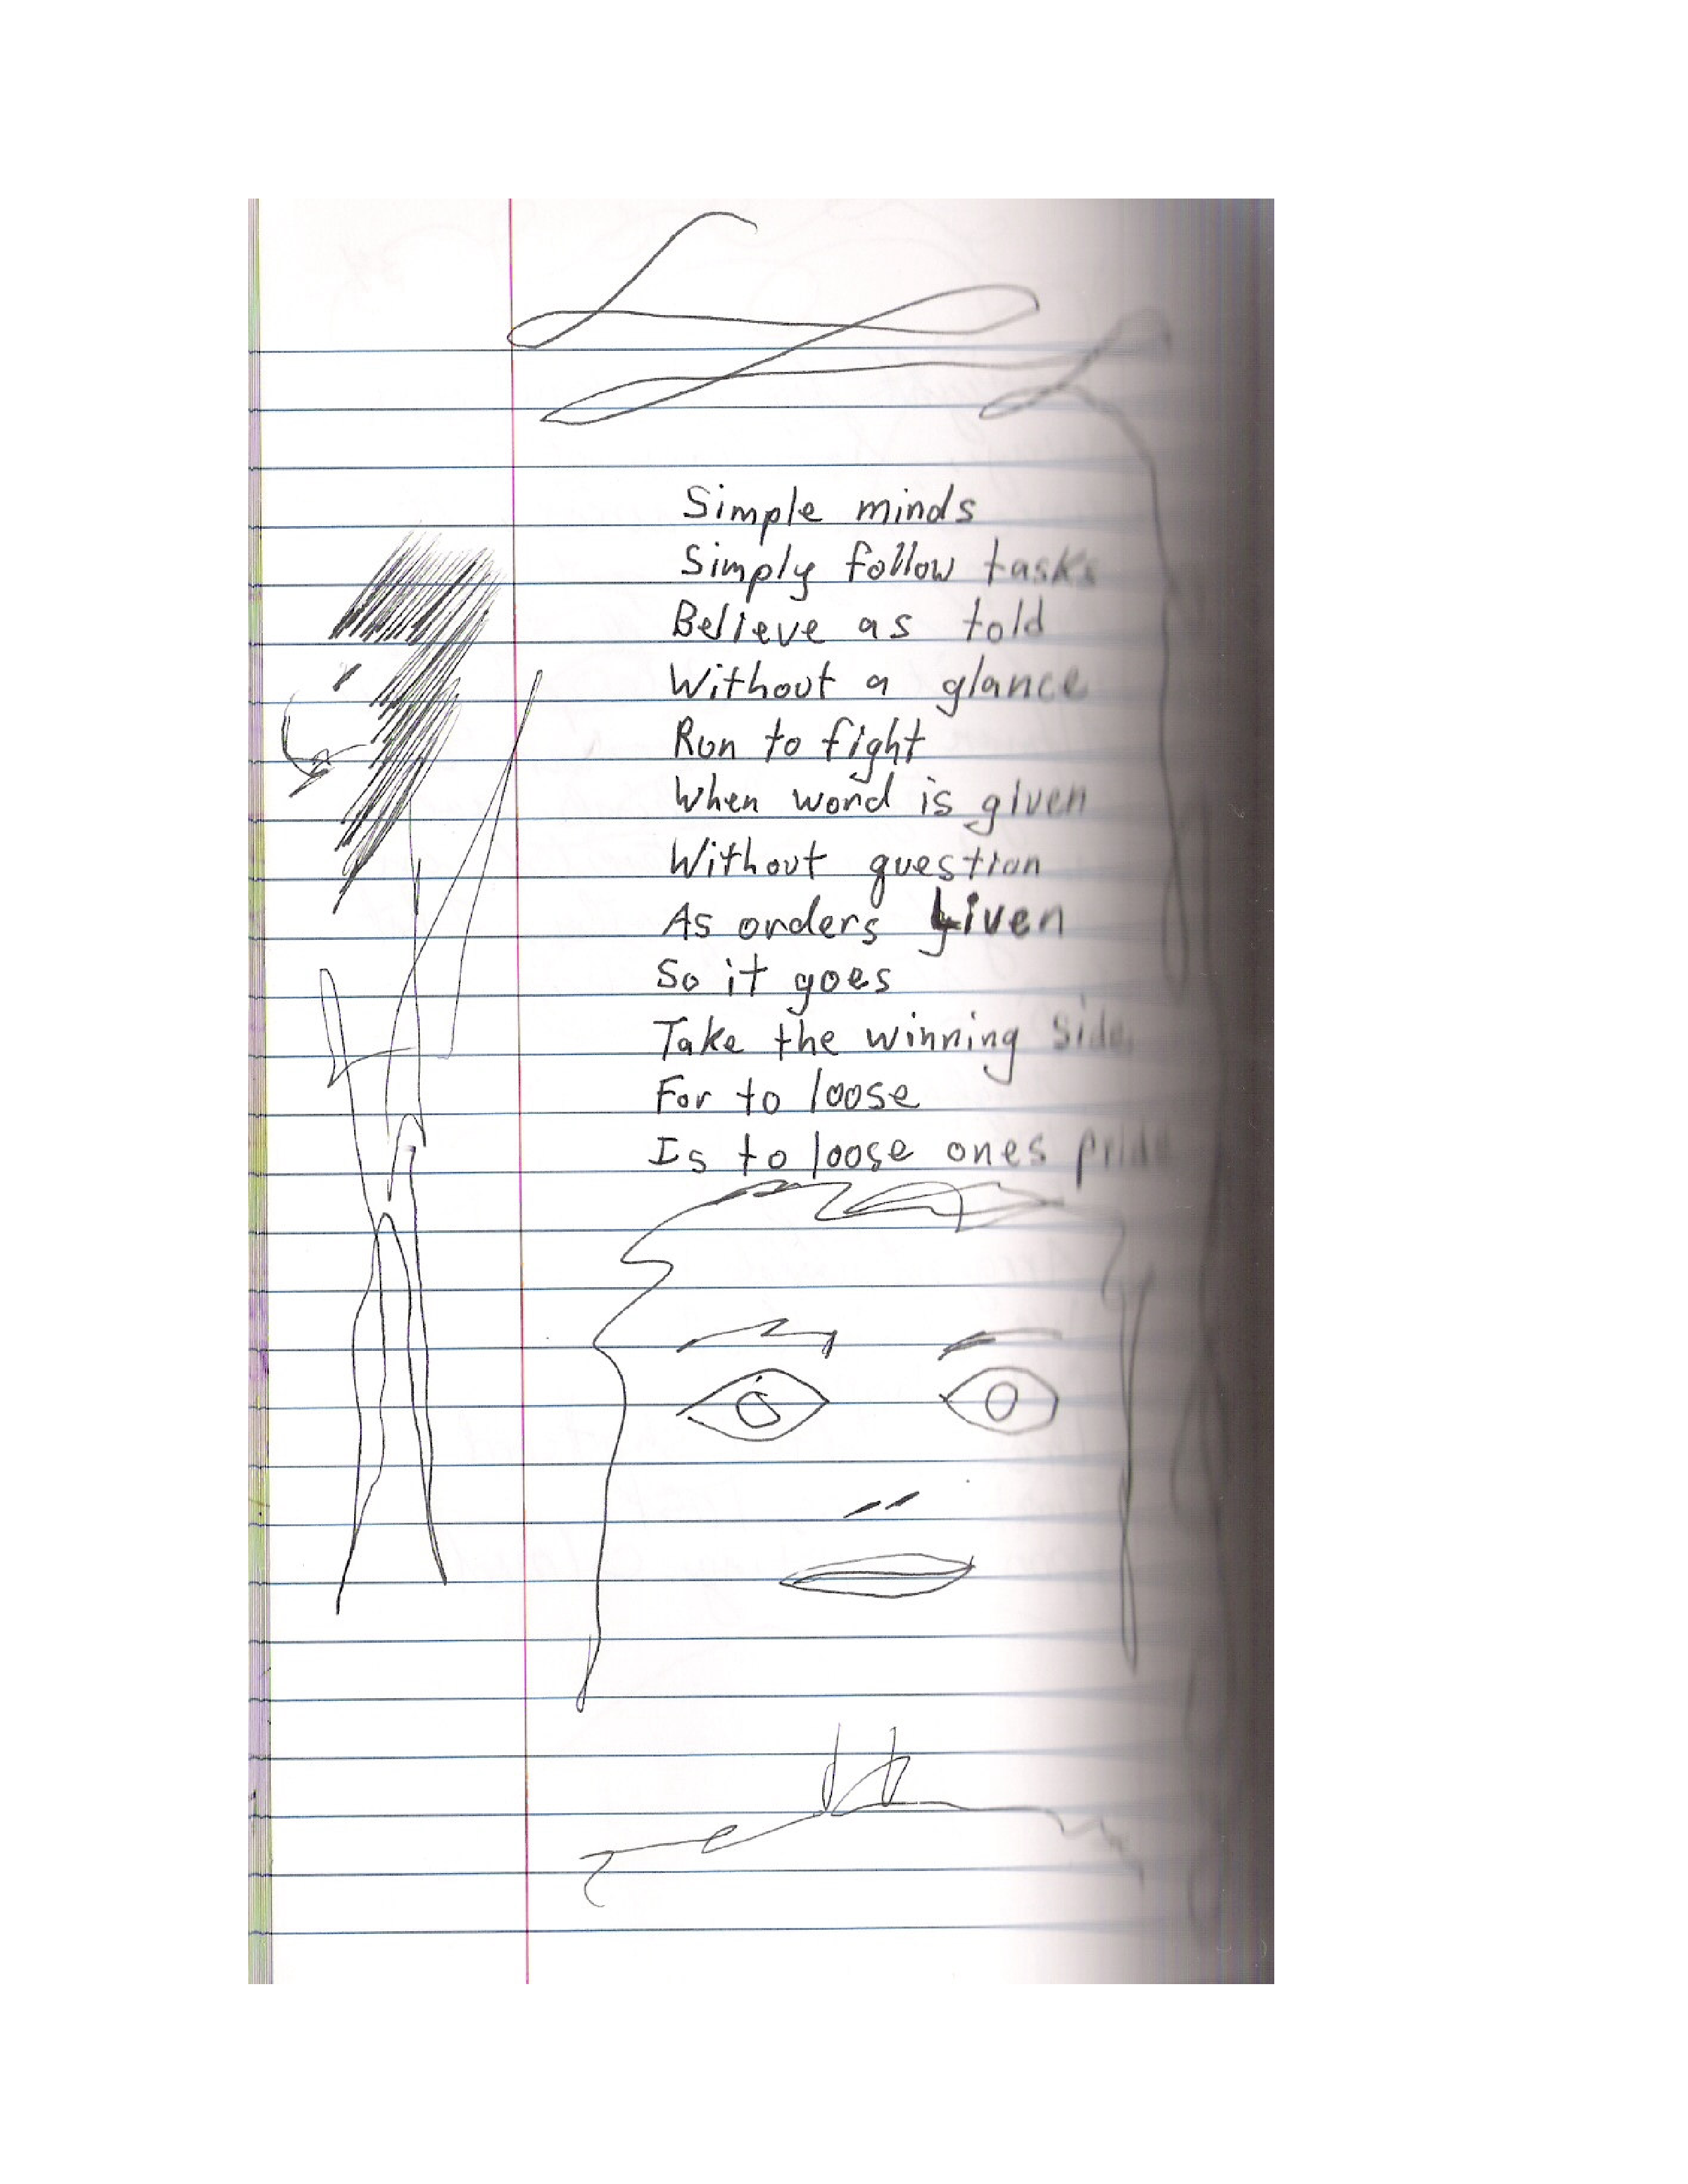 Simple minds
Simply follow tasks
Believe as told
Without a glance
Run to fight
When word is given
Without question
As orders given
So it goes
Take the winning side
For to loose
Is to loose ones pride